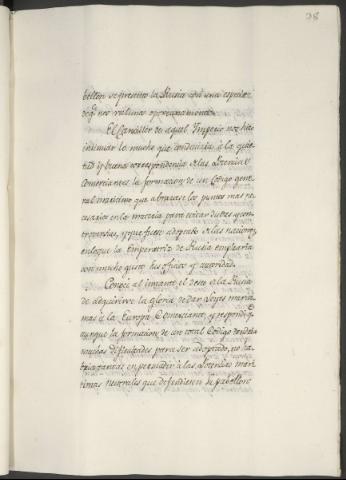 98
bellon se presentó la Rusia con una especie
de que nos valimos oportunamente
El Canciller de aquel Imperio nos hizo
insinuar lo mucho que conduciria à la quie-
tud y buena correspondencia de las Potencias
Comerciantes la formacion de un Codigo gene-
ral maritimo que abrazase los puntos mas ne-
cesarios en la materia para evitar dudas y con-
troversias, y que fuese adoptado de las naciones,
en lo que la Emperatriz de Rusia emplearia
con mucho gusto sus oficios y autoridad.
Conocí al instante el deseo de la Rusia
de adquirirse la gloria de dar Leyes mariti-
mas à la Europa Comerciante, y respondí que
aunque la formacion de un total Codigo tendria
muchas dificultades para ser adoptado, no ha-
bria tantas en persuadir à las Potencias mari-
timas neutrales que defendiesen su pabellon